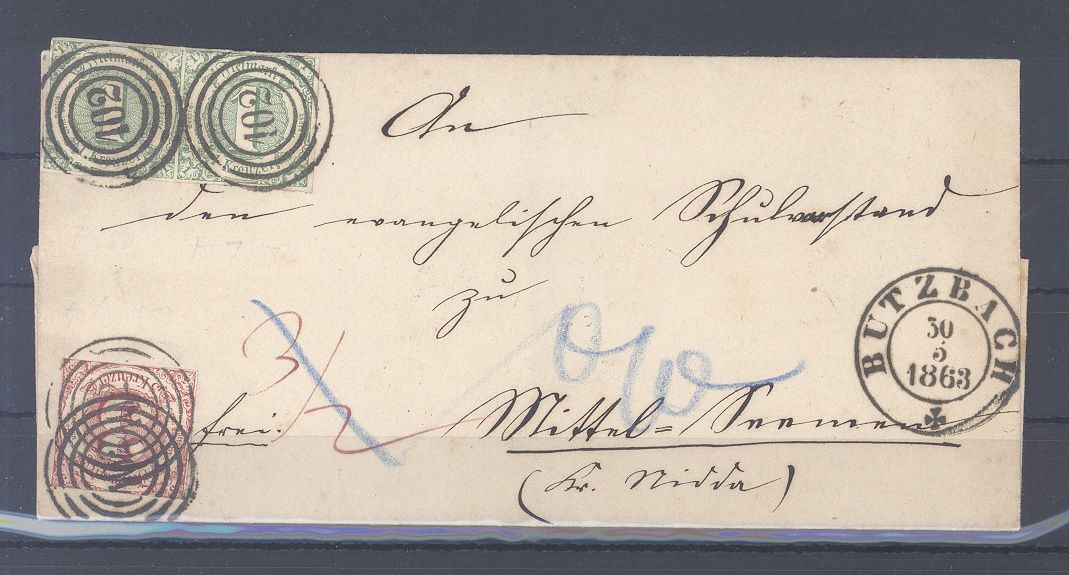 102 102
An
den evangelischen Schulvorstand
zu
BUTZBACH
30
5
1863
3/2
frei.
Mittel=Seemen
(Kr. Nidda)
102
Kreuzer